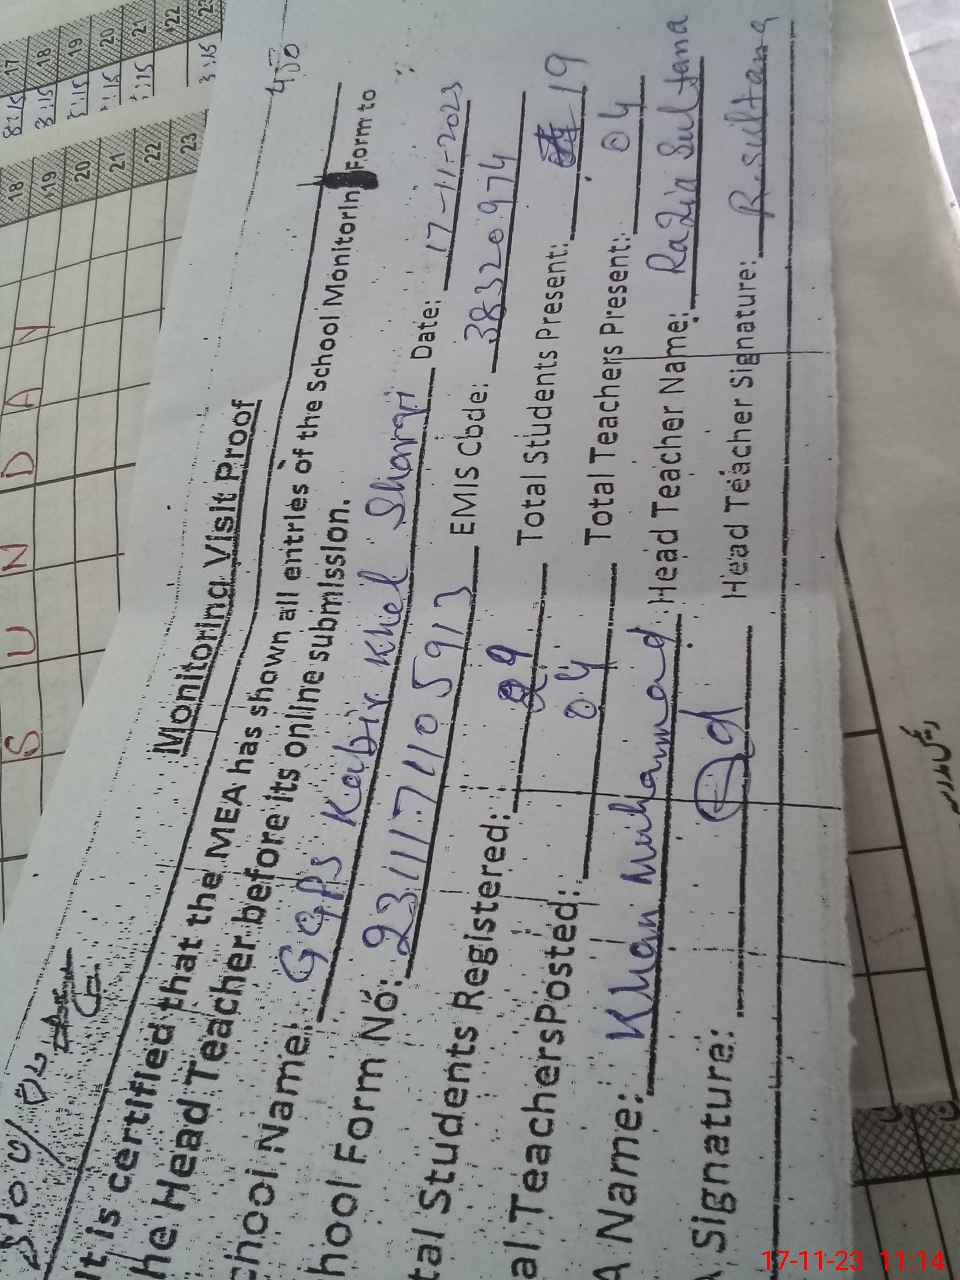 Monitoring Visit Proof
It is certified that the MEA has shown all entries of the School Monitorin Form to
he Head Teacher before its online submission.
chool Name: GGPS Kabir Khel Sharqi Date: 17-11-2023
hool Form No: 2311171105913 EMIS Code: 38320974
tal Students Registered: 29 Total Students Present: 19
al TeachersPosted: 04 Total Teachers Present: 04
A Name: Khan Muhammad Head Teacher Name: Razia Sultana
Signature: Head Teacher Signature: R.sultana
S U N D A Y
17 18 19 20 21 22 23
8:15 8:15 8:15
3:15
18 19 20 21 22 23
17-11-23 11:14